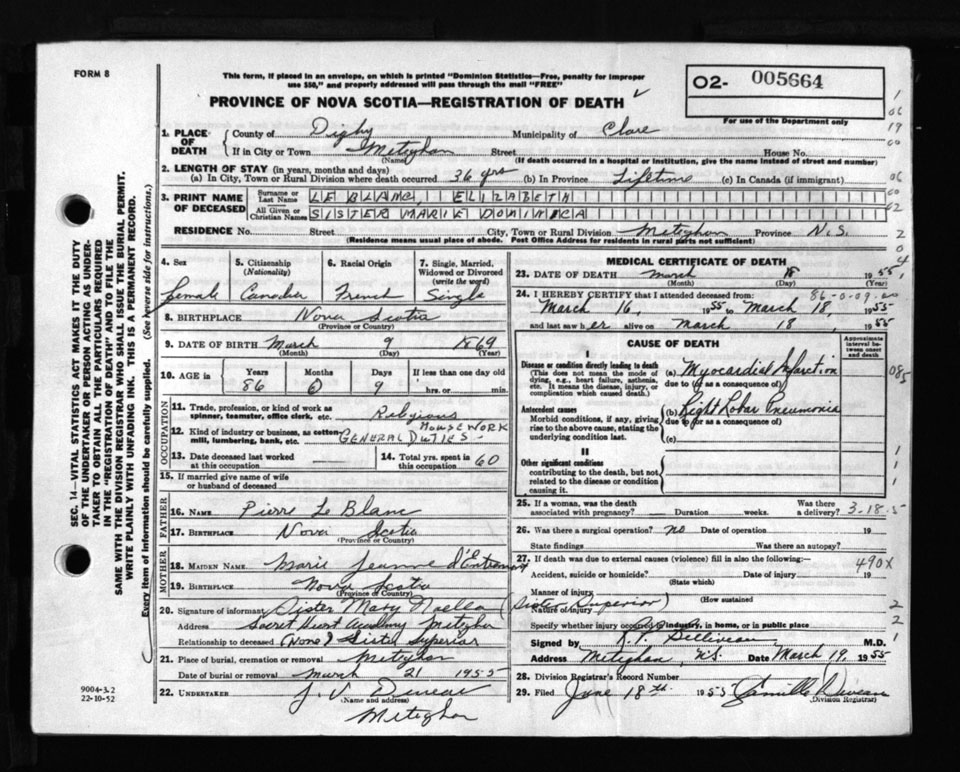 FORM 8
This form, if placed in an envelope, on which is printed "Dominion Statistics—Free, penalty for improper
use $50," and properly addressed will pass through the mail "FREE"
PROVINCE OF NOVA SCOTIA—REGISTRATION OF DEATH
O2- 005664
For use of the Department only
1. PLACE OF DEATH
County of Digby Municipality of Clare
If in City or Town Meteghan Street House No.
(Name) (If death occurred in a hospital or institution, give name instead of street and number)
2. LENGTH OF STAY (in years, months and days)
(a) In City, Town or Rural Division where death occurred 36 yrs (b) In Province Lifetime (c) In Canada (if immigrant)
3. PRINT NAME OF DECEASED
Surname or Last Name LE BLANC, ELIZABETH
All Given or Christian Names SISTER MARIE DOMINICA
RESIDENCE No. Street City, Town or Rural Division Meteghan Province N.S.
(Residence means usual place of abode. Post Office Address for residents in rural parts not sufficient)
4. Sex 5. Citizenship (Nationality) 6. Racial Origin 7. Single, Married, Widowed or Divorced (write the word)
female Canadian French Single
8. BIRTHPLACE Nova Scotia
(Province or Country)
9. DATE OF BIRTH March 9 1869
(Month) (Day) (Year)
10. AGE in Years Months Days If less than one day old
86 0 9 hrs. or min.
OCCUPATION
11. Trade, profession, or kind of work as spinner, teamster, office clerk, etc. Religious
12. Kind of industry or business, as cotton-mill, lumbering, bank, etc. HOUSEWORK GENERAL DUTIES
13. Date deceased last worked at this occupation 14. Total yrs. spent in this occupation 60
15. If married give name of wife or husband of deceased
FATHER
16. NAME Pierre Le Blanc
17. BIRTHPLACE Nova Scotia
(Province or Country)
MOTHER
18. MAIDEN NAME Marie Jeanne d'Entremont
19. BIRTHPLACE Nova Scotia
(Province or Country)
20. Signature of informant Sister Mary Noella (Sister Superior)
Address Sacred Heart Academy Meteghan
Relationship to deceased (None) Sister Superior
21. Place of burial, cremation or removal Meteghan
Date of burial or removal March 21 1955
22. UNDERTAKER J. V. Deveau
(Name and address)
Meteghan
MEDICAL CERTIFICATE OF DEATH
23. DATE OF DEATH March 18 1955
(Month) (Day)
24. I HEREBY CERTIFY that I attended deceased from 86-0-09
March 16, 1955 to March 18, 1955
and last saw her alive on March 18, 1955
CAUSE OF DEATH
Approximate interval between onset and death
I
Disease or condition directly leading to death
(This does not mean the mode of dying, e.g., heart failure, asthenia, etc. It means the disease, injury, or complication which caused death.)
(a) Myocardial Infarction
due to (or as a consequence of)
Antecedent causes
Morbid conditions, if any, giving rise to the above cause, stating the underlying condition last.
(b) Right Lobar Pneumonia
due to (or as a consequence of)
(c)
II
Other significant conditions
contributing to the death, but not related to the disease or condition causing it.
25. If a woman, was the death associated with pregnancy? Duration weeks. Was there a delivery? 3-18-5
26. Was there a surgical operation? no Date of operation 19
State findings Was there an autopsy?
27. If death was due to external causes (violence) fill in also the following:— 490X
Accident, suicide or homicide? Date of injury 19
(State which)
Manner of injury
(How sustained
Nature of injury
Specify whether injury occurred in industry, in home, or in public place
Signed by M.D.
Address Meteghan, N.S. Date March 19, 1955
28. Division Registrar's Record Number
29. Filed June 18th 1955 Camille Deveau
(Division Registrar)
SEC. 14—VITAL STATISTICS ACT MAKES IT THE DUTY
OF THE UNDERTAKER OR PERSON ACTING AS UNDER-
TAKER TO OBTAIN ALL THE PARTICULARS REQUIRED
IN THE "REGISTRATION OF DEATH" AND TO FILE THE
SAME WITH THE DIVISION REGISTRAR WHO SHALL ISSUE THE BURIAL PERMIT.
WRITE PLAINLY WITH UNFADING INK. THIS IS A PERMANENT RECORD.
Every item of information should be carefully supplied. (See reverse side for instructions.)
9004-3.2
22-10-52